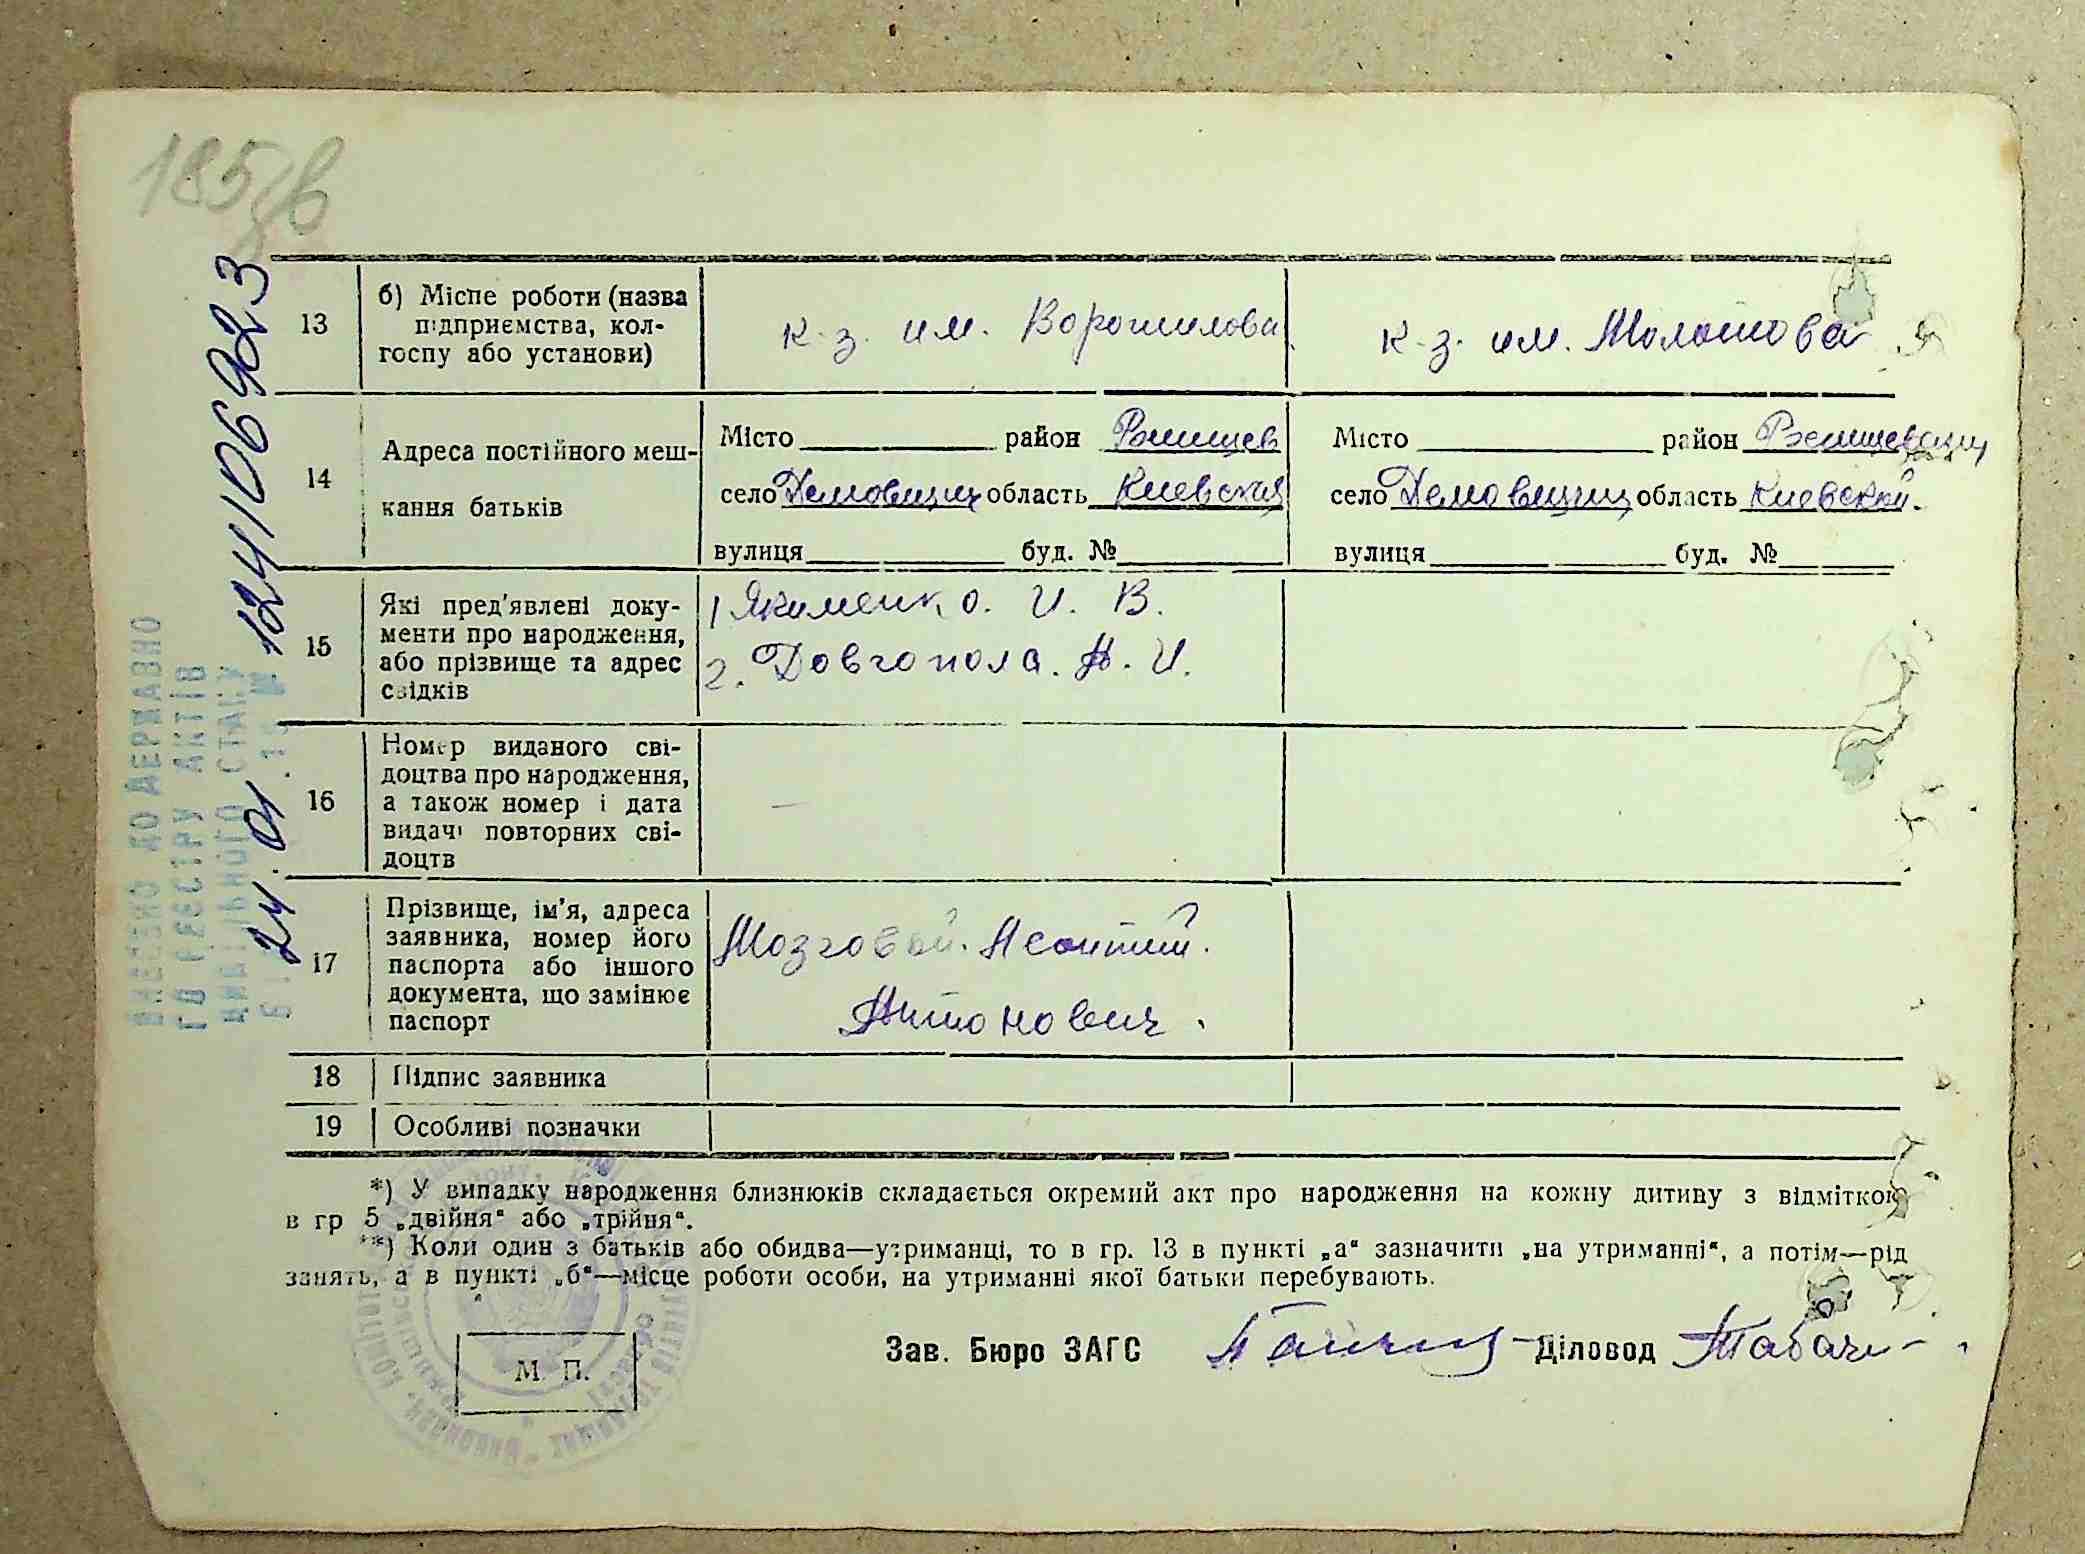 185зв
ВНЕСЕНО ДО ДЕРЖАВНО
ГО РЕЄСТРУ АКТІВ
ЦИВІЛЬНОГО СТАНУ
24.01. 124/106923
13
б) Місце роботи (назва
підприємства, кол-
госпу або установи)
к-з. им. Ворошилова
к-з. им. Молотова
14
Адреса постійного меш-
кання батьків
Місто район Ржищев
село Демовщин область Киевская
вулиця буд. №
Місто район Ржищевский
село Демовщин область Киевской.
вулиця буд. №
15
Які пред'явлені доку-
менти про народження,
або прізвище та адрес
свідків
1 Якименко. И. В.
2. Довгопола. Н. И.
16
Номер виданого сві-
доцтва про народження,
а також номер і дата
видачі повторних сві-
доцтв
—
17
Прізвище, ім'я, адреса
заявника, номер його
паспорта або іншого
документа, що замінює
паспорт
Мозговой. Леонтий.
Антонович.
18
Підпис заявника
19
Особливі позначки
*) У випадку народження близнюків складається окремий акт про народження на кожну дитину з відміткою
в гр 5 „двійня“ або „трійня“.
**) Коли один з батьків або обидва—утриманці, то в гр. 13 в пункті „а“ зазначити „на утриманні“, а потім—рід
занять, а в пункті „б“—місце роботи особи, на утриманні якої батьки перебувають.
Зав. Бюро ЗАГС
Діловод Табач
М. П.